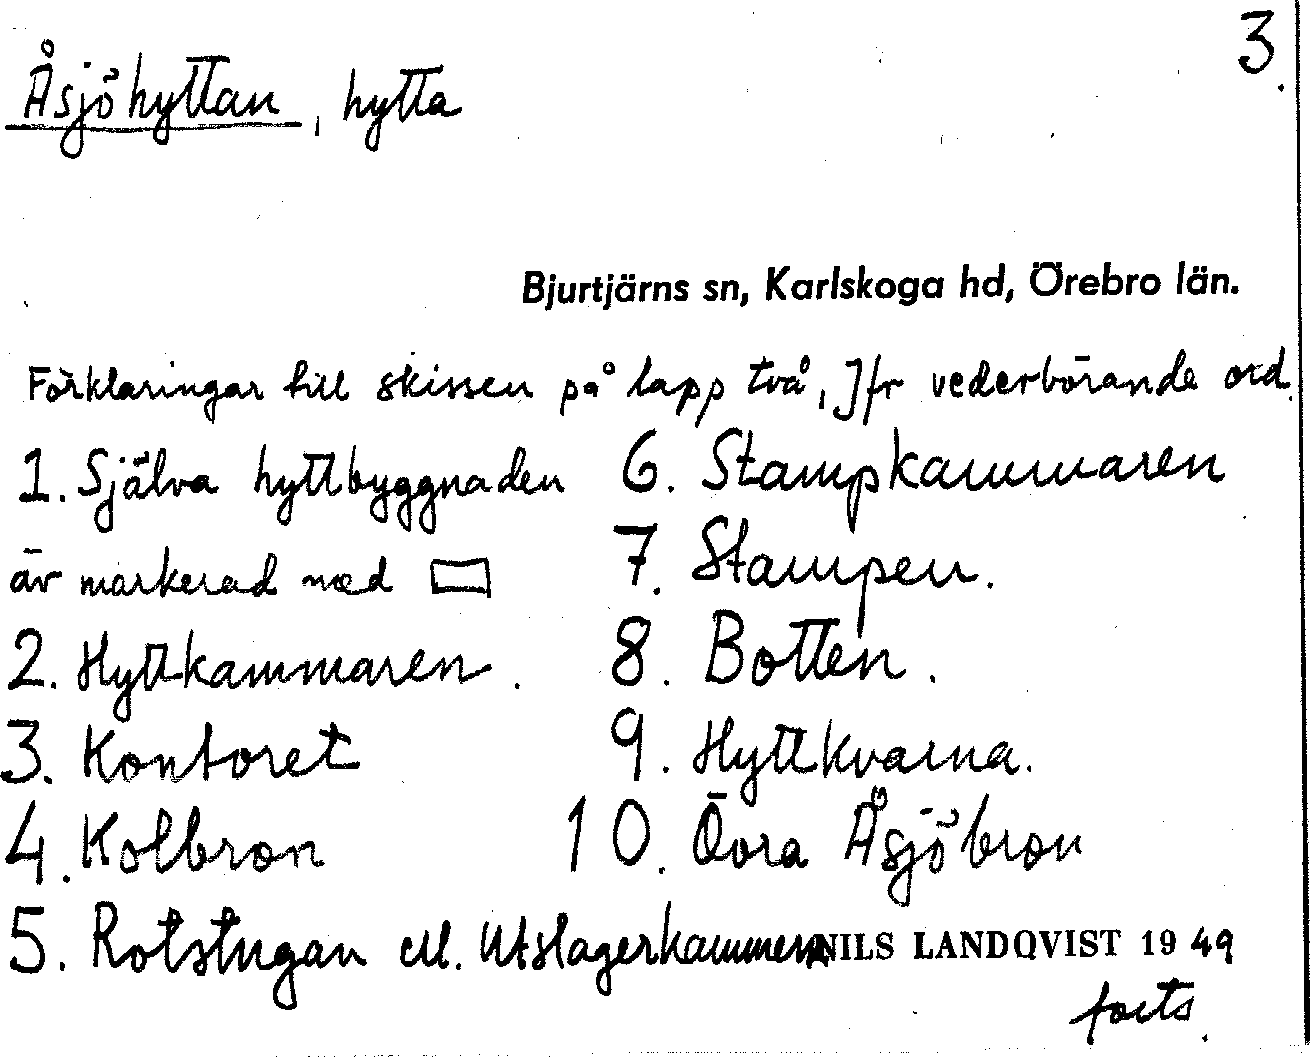 3.
Åsjöhyttan, hytta
Bjurtjärns sn, Karlskoga hd, Örebro län.
Förklaringar till skissen på lapp två, Jfr vederbörande ord.
1. Själva hyttbyggnaden
är markerad med
2. Hyttkammaren.
3. Kontoret
4. Kolbron
5. Rotstugan ell. Utslagerkammern
6. Stampkammaren
7. Stampen.
8. Botten.
9. Hyttkvarna.
10. Övra Åsjöbron
NILS LANDQVIST 1949
forts.